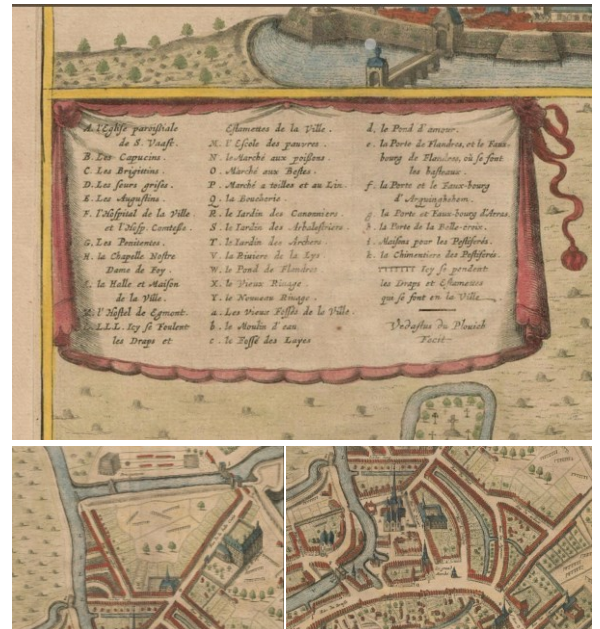 A. l'Eglise paroissiale
de S. Vaast.
B. Les Capucins.
C. Les Brigittins.
D. Les seurs grises.
E. Les Augustins.
F. l'Hospital de la Ville
et l'Hosp. Comtesse.
G. Les Penitentes.
H. la Chapelle Nostre
Dame de Foy.
la Halle et Maison
de la Ville.
l'Hostel de Egmont.
L.L.L. Icy se Foulent
les Draps et
Estamettes de la Ville.
M. l'Escole des pauvres.
N. le Marché aux poissons.
O. Marché aux Bestes.
P. Marché a toilles et au Lin.
Q. la Boucherie.
R. le Iardin des Canonniers
S. le Iardin des Arbalestriers.
T. le Iardin des Archers
V. la Riviere de la Lys
W. le Pond de Flandres
X. le Vieux Rivage.
Y. le Nouveau Rivage.
a. Les Vieux Fossés de la Ville.
b. le Moulin d'eau
c. le Fossé des Layes
d. le Pond d'amour.
e. la Porte de Flandres, et le Faux-
bourg de Flandres, où se font
les basteaux.
f. la Porte et le Faux-bourg
d'Arquinghehem.
g. la Porte et Faux-bourg d'Arras.
h. la Porte de la Bolle-troin.
i. Maisons pour les Pestiferés.
k. le Chimentiere des Pestiferés.
Icy se pendent
les Draps et Estamettes
qui se font en la Ville
Vedastus du Plouich
Fecit